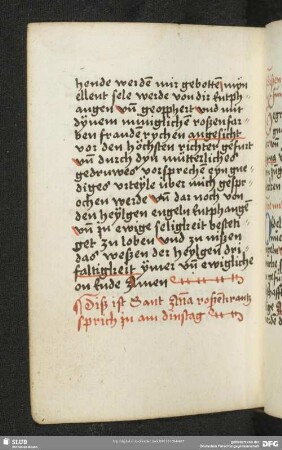 hende werdē mir gebotten mÿn
ellent sele werde von dir entph
angen vn̄ geopphert vnd mit
dÿnem mÿniglichen rosßen far
ben fraude rÿchen angesicht
vor den höchsten richter gefurt
vn̄ durch dÿn mutterliches
gedruwes vorspreche eÿn gne
diges vrteyle über mich gespr
ochen werde vn̄ dar noch von
den heÿlgen engeln entphangē
vn̄ zu ewige seligkeit besteti
get zu loben vnd zu nißen
das weßen der heÿlgen dri
faltigkeit ÿmer vn̄ ewigliche
on ende Amen
Diß ist Sant Anā roßenkrantz
sprich in am dinstag
SLUB
DFG